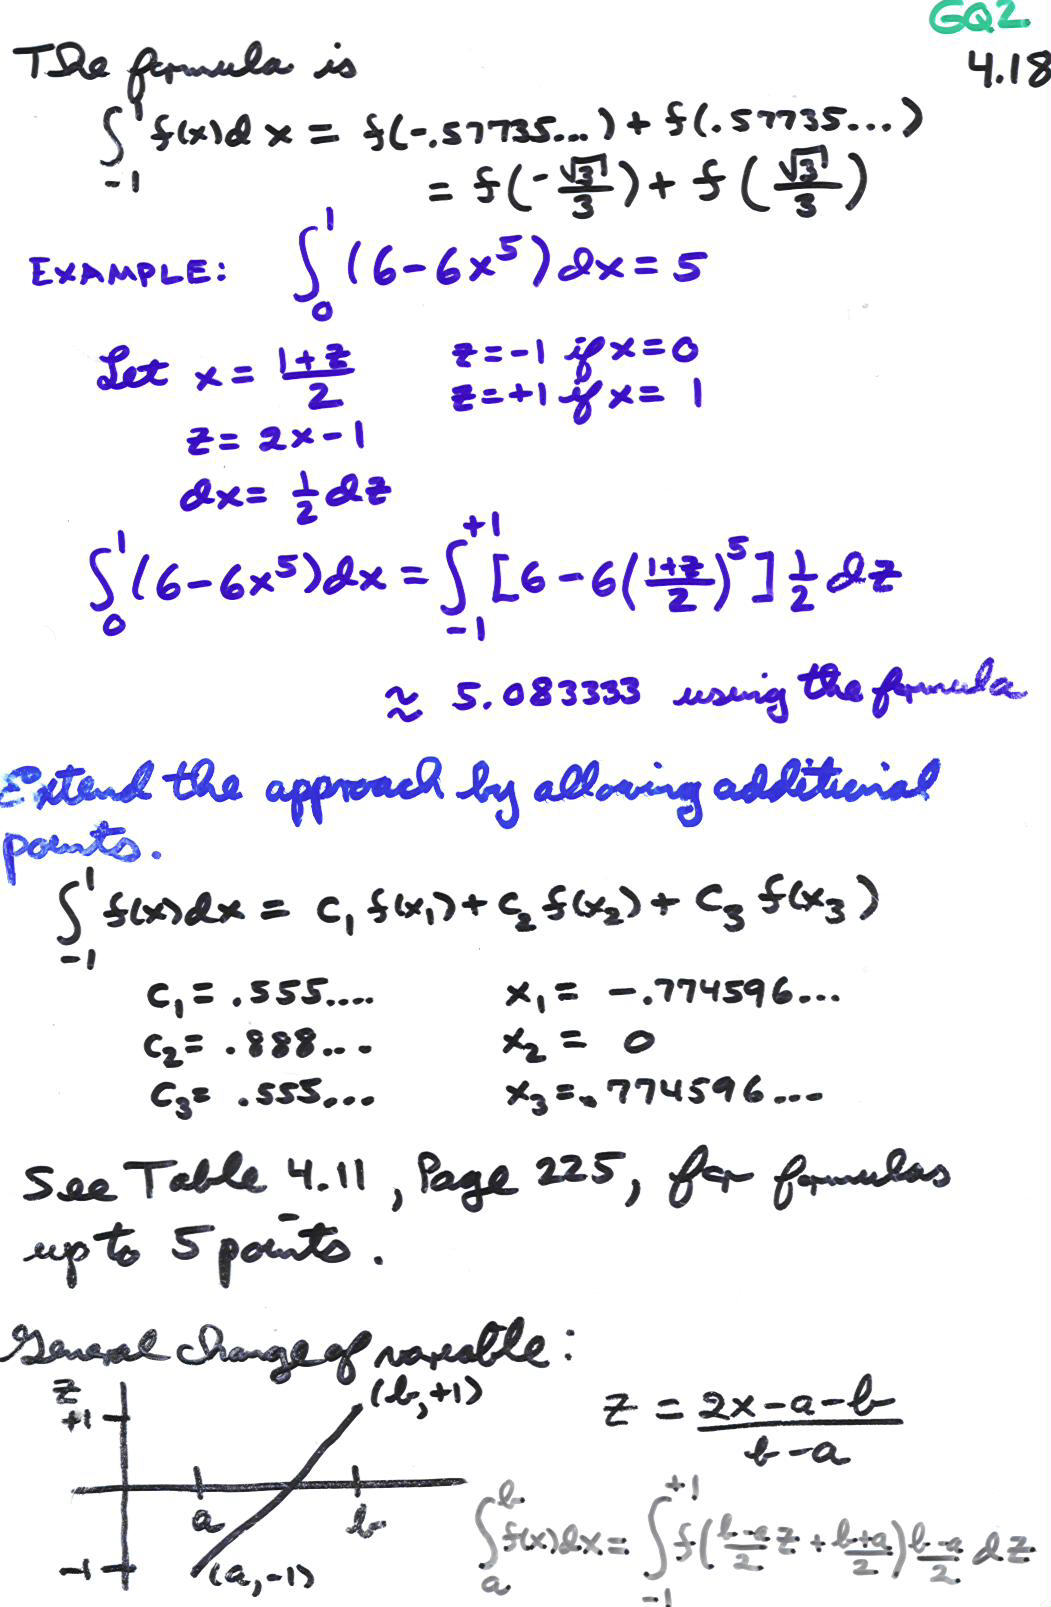 GQ2
4.18
The formula is
∫₋₁¹ f(x)dx = f(-.57735...) + f(.57735...)
= f(-√3/3) + f(√3/3)
EXAMPLE: ∫₀¹ (6-6x⁵)dx = 5
Let x = (1+z)/2 z=-1 if x=0
z=+1 if x=1
z = 2x-1
dx = ½ dz
∫₀¹ (6-6x⁵)dx = ∫₋₁⁺¹ [6-6((1+z)/2)⁵] ½ dz
≈ 5.083333 using the formula
Extend the approach by allowing additional
points.
∫₋₁¹ f(x)dx = C₁ f(x₁) + C₂ f(x₂) + C₃ f(x₃)
C₁ = .555.... x₁ = -.774596...
C₂ = .888... x₂ = 0
C₃ = .555... x₃ = .774596...
See Table 4.11, Page 225, for formulas
up to 5 points.
General change of variable:
z
+1
(b,+1)
z = (2x-a-b)/(b-a)
a b
-1
(a,-1)
∫ₐᵇ f(x)dx = ∫₋₁⁺¹ f((b-a)/2 z + (b+a)/2) (b-a)/2 dz